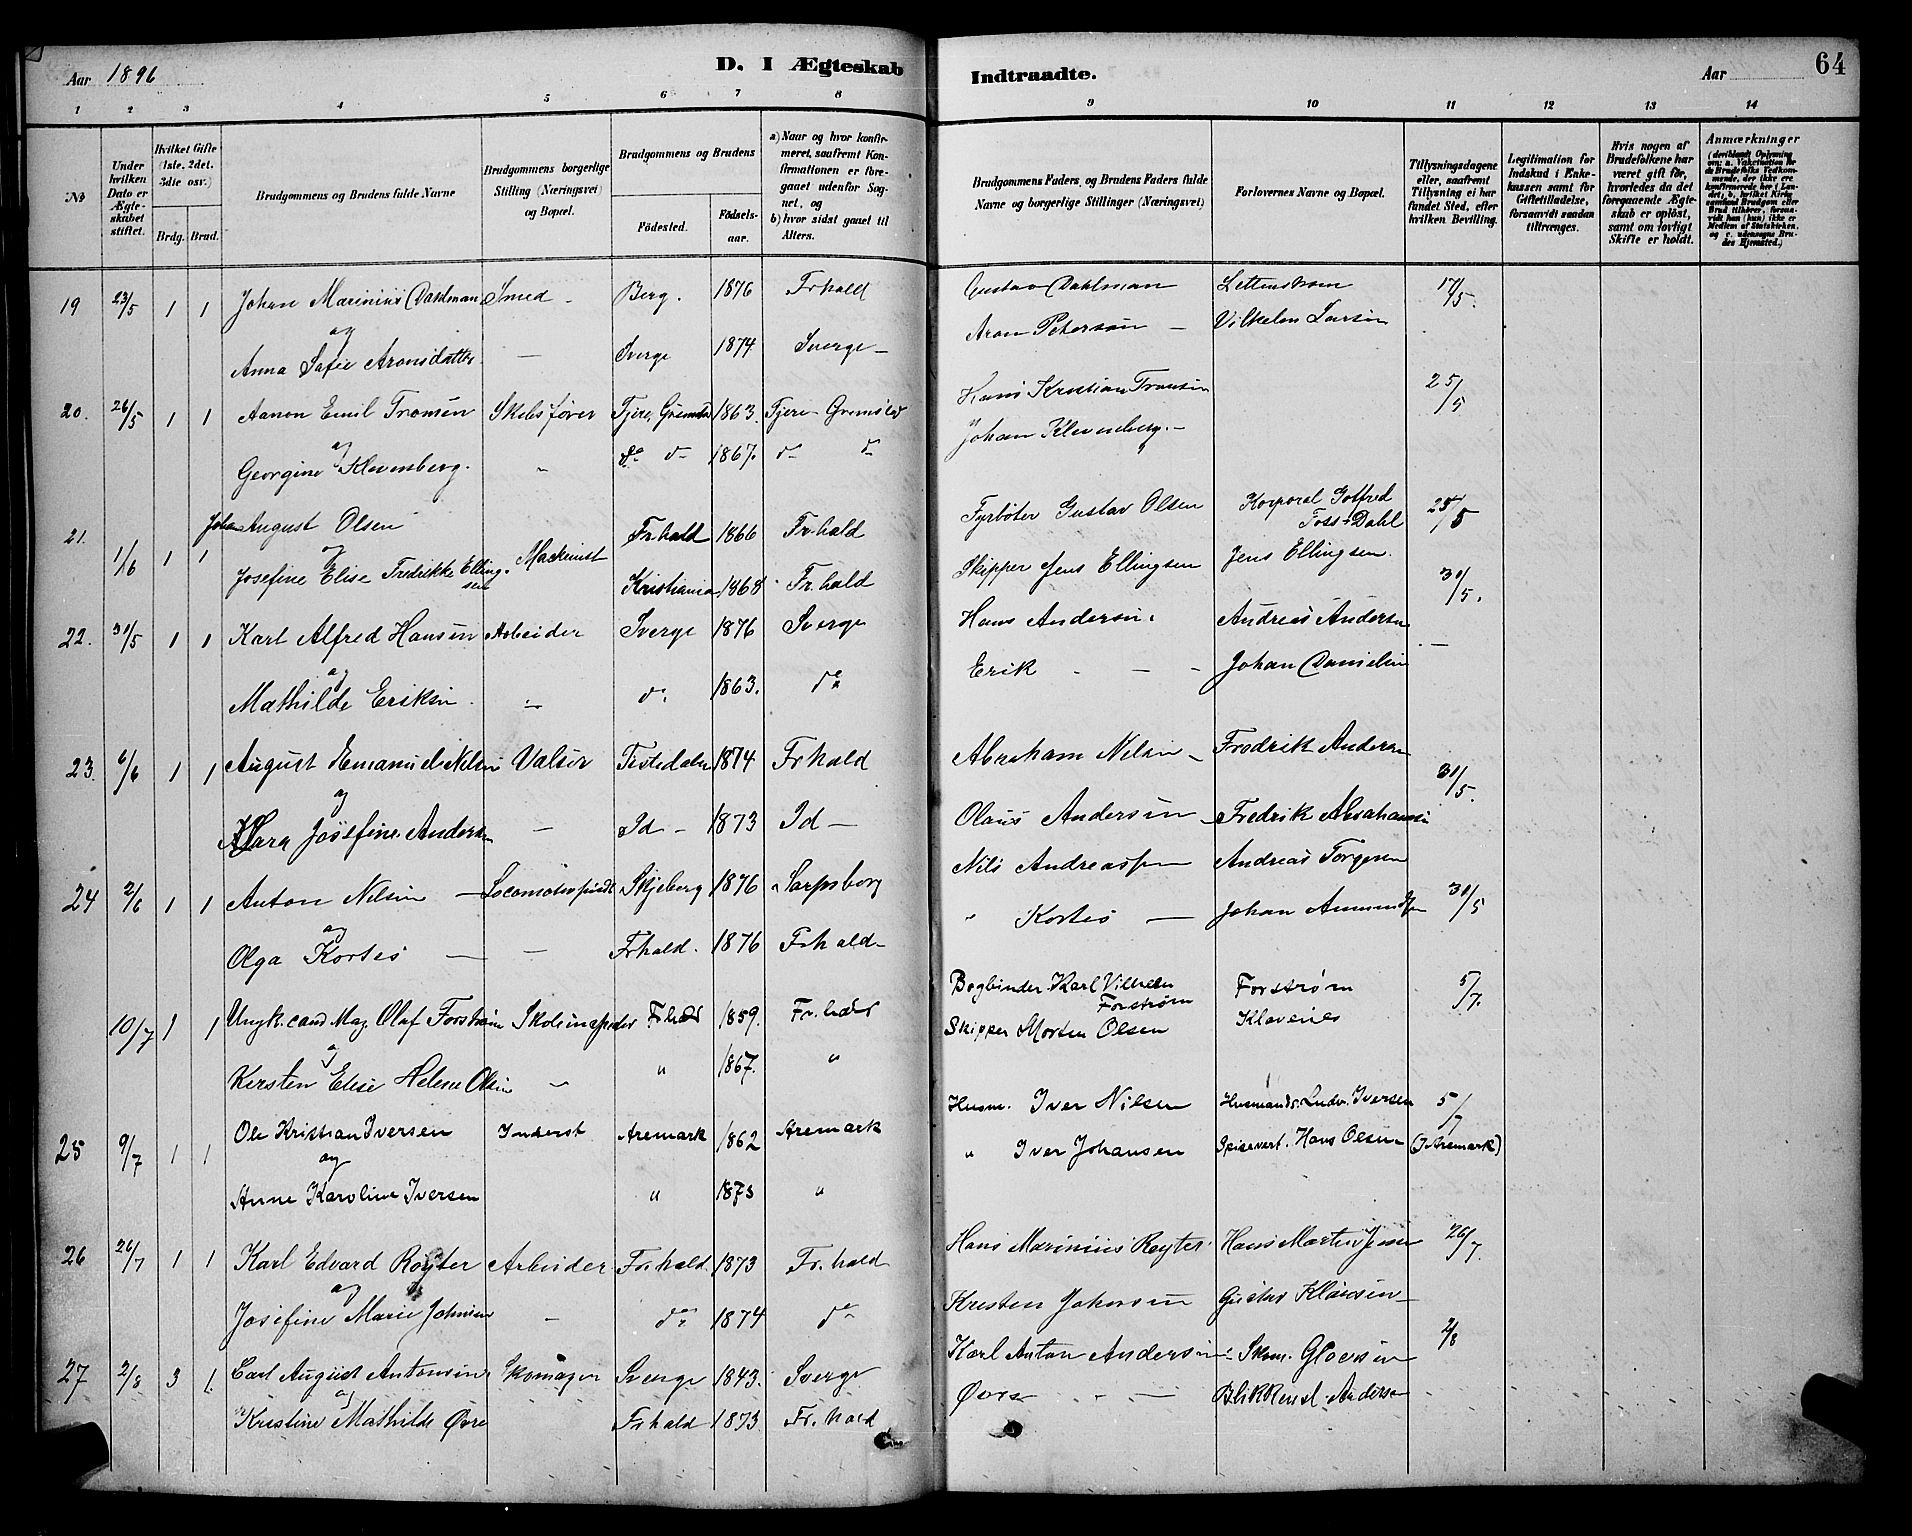 Aar 1896
D. I Ægteskab
Indtraadte.
Aar
64
1 2 3 4 5 6 7 8 9 10 11 12 13 14
No
Under hvilken Dato er Ægteskabet stiftet.
Hvilket Gifte (1ste, 2det, 3die osv.)
Brdg. Brud.
Brudgommens og Brudens fulde Navne
Brudgommens borgerlige Stilling (Næringsvei) og Bopæl.
Brudgommens og Brudens
Fødested.
Fødsels-aar.
a) Naar og hvor konfirmeret, saafremt Konfirmationen er foregaaet udenfor Sognet, og
b) hvor sidst gaaet til Alters.
Brudgommens Faders, og Brudens Faders fulde Navne og borgerlige Stillinger (Næringsvei)
Forlovernes Navne og Bopæl.
Tillysningsdagene eller, saafremt Tillysning ei har fundet Sted, efter hvilken Bevilling.
Legitimation for Indskud i Enkekassen samt for Giftetilladelse, forsaavidt saadan tiltrænges.
Hvis nogen af Brudefolkene har været gift før, hvorledes da det foregaaende Ægteskab er opløst, samt om lovligt Skifte er holdt.
Anmærkninger
19 23/5 1 1 Johan Marinius Dahlman Smed - Berg. 1876 Frhald Gustav Dahlman 17/5.
og
Anna Sofie Aronsdatter - Sverge 1874 Sverge - Aron Peterson - Vilhelm Larsen
20. 26/5 1 1 Aanon Emil Tromsen Skibsfører Fjere, 1863. Fjere - Hans Kristian Tromsen 25/5
og
Georgine Klevenberg. do do 1867. do do Johan Klevenberg. -
21. 1/16 1 1 Johan August Olsen Maskinist Fr.hald 1866 Fr.hald Fyrbøter Gustav Olsen Korporal Gotfred Foss-Dahl 25/5
og
Josefine Elise Fredrikke Ellingsen Kristiania 1868 Fr.hald Skipper Jens Ellingsen Jens Ellingsen.
22. 31/5 1 1 Karl Alfred Hansen Arbeider Sverge 1876 Sverge Hans Andersen. Andreas Andersen 31/5.
og
Mathilde Eriksen. do 1863. do Erik - - - Johan Danielsen -
23. 6/6 1 1 August Emanuel Nilsen Valser Tistedalen 1874 Frhald Abraham Nilsen - Fredrik Andersen 31/5.
og
Klara Josefine Andersen - Id - 1873 Id - Olaus Andersen - Fredrik Abrahamsen
24 2/6 1 1 Anton Nilsen - Skjeberg 1876 Sarpsborg Nils Andreassen Andreas Torgersen 31/5
og
Olga Kortes - - Frhald. 1876 Frhald - " Kortes - Johan Amundsen
10/7 1 1 Ungk. cand. Mag. Olaf Forstrøm Skoleinspektør Frhald 1859. Fr.hald Bogbinder Karl Vilhelm Forstrøm Forstrøm 5/7.
og
Kersten Elise Helene Olsen " 1867. " Skipper Morten Olsen Klavenes
25 9/7 1 1 Ole Kristian Iversen Inderst Aremark 1862 Aremark Husm. Iver Nilsen Husmands. Ludv. Iversen 5/7
og
Anne Karoline Iversen " 1873 " " Iver Johansen Spisevert. Hans Olsen (I Aremark)
26 26/7 1 1 Karl Edvard Røyter Arbeider Fr.hald 1873 Fr.hald Hans Marinius Røyter. Hans Martin Jensen 26/7.
og
Josefine Marie Johnsen - do 1874 do Kresten Johnsen Gustav Klausen -
27 2/8 3 1. Carl August Antonsen Skomager Sverge 1843. Sverge Karl Anton Andersen Skom. Gloersen 2/8
og
Kristine Mathilde Øvre Frhald 1873. Fr.hald Øvre - - Blikkensl. Andersen